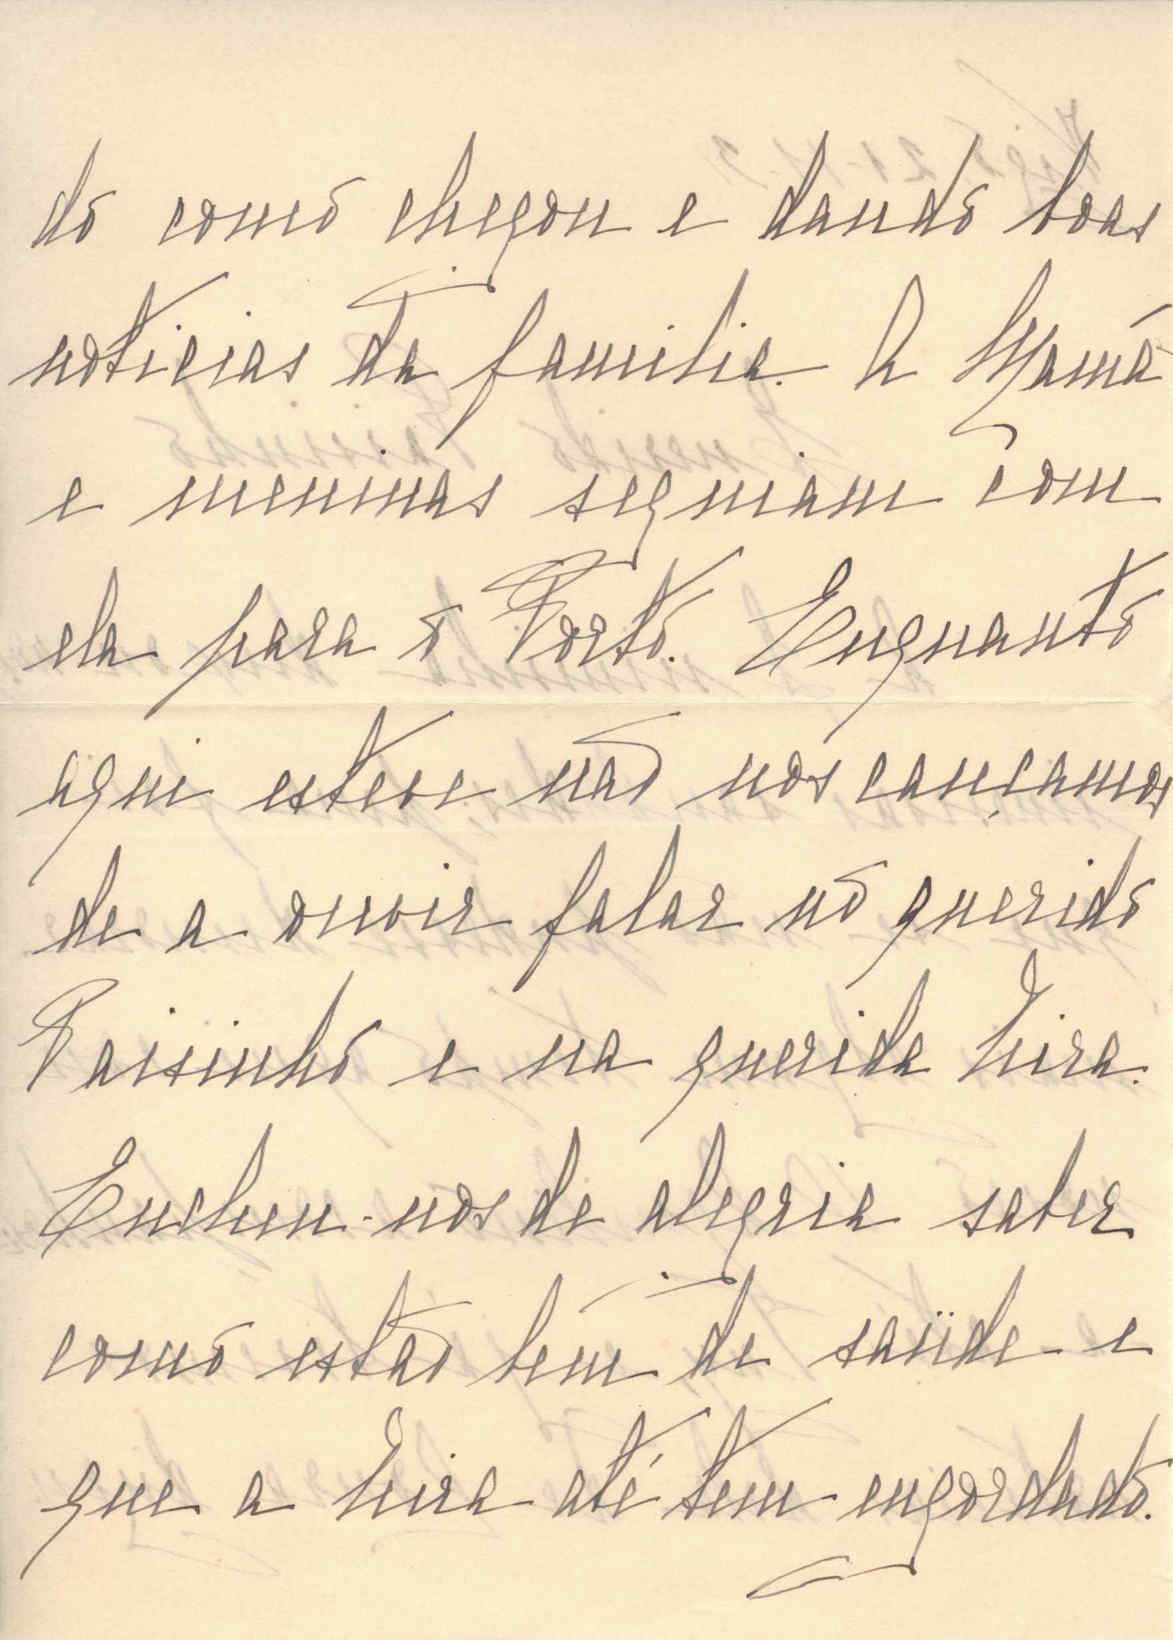 do como chegou e dando boas
noticias da familia. A Mamã
e meninas seguiam com
ela para o Porto. Enquanto
aqui esteve não nos cançamos
de a ouvir falar no querido
Paisinho e na querida
Encheu-nos de alegria saber
como estão bem de saüde e
que a até tem engordado.